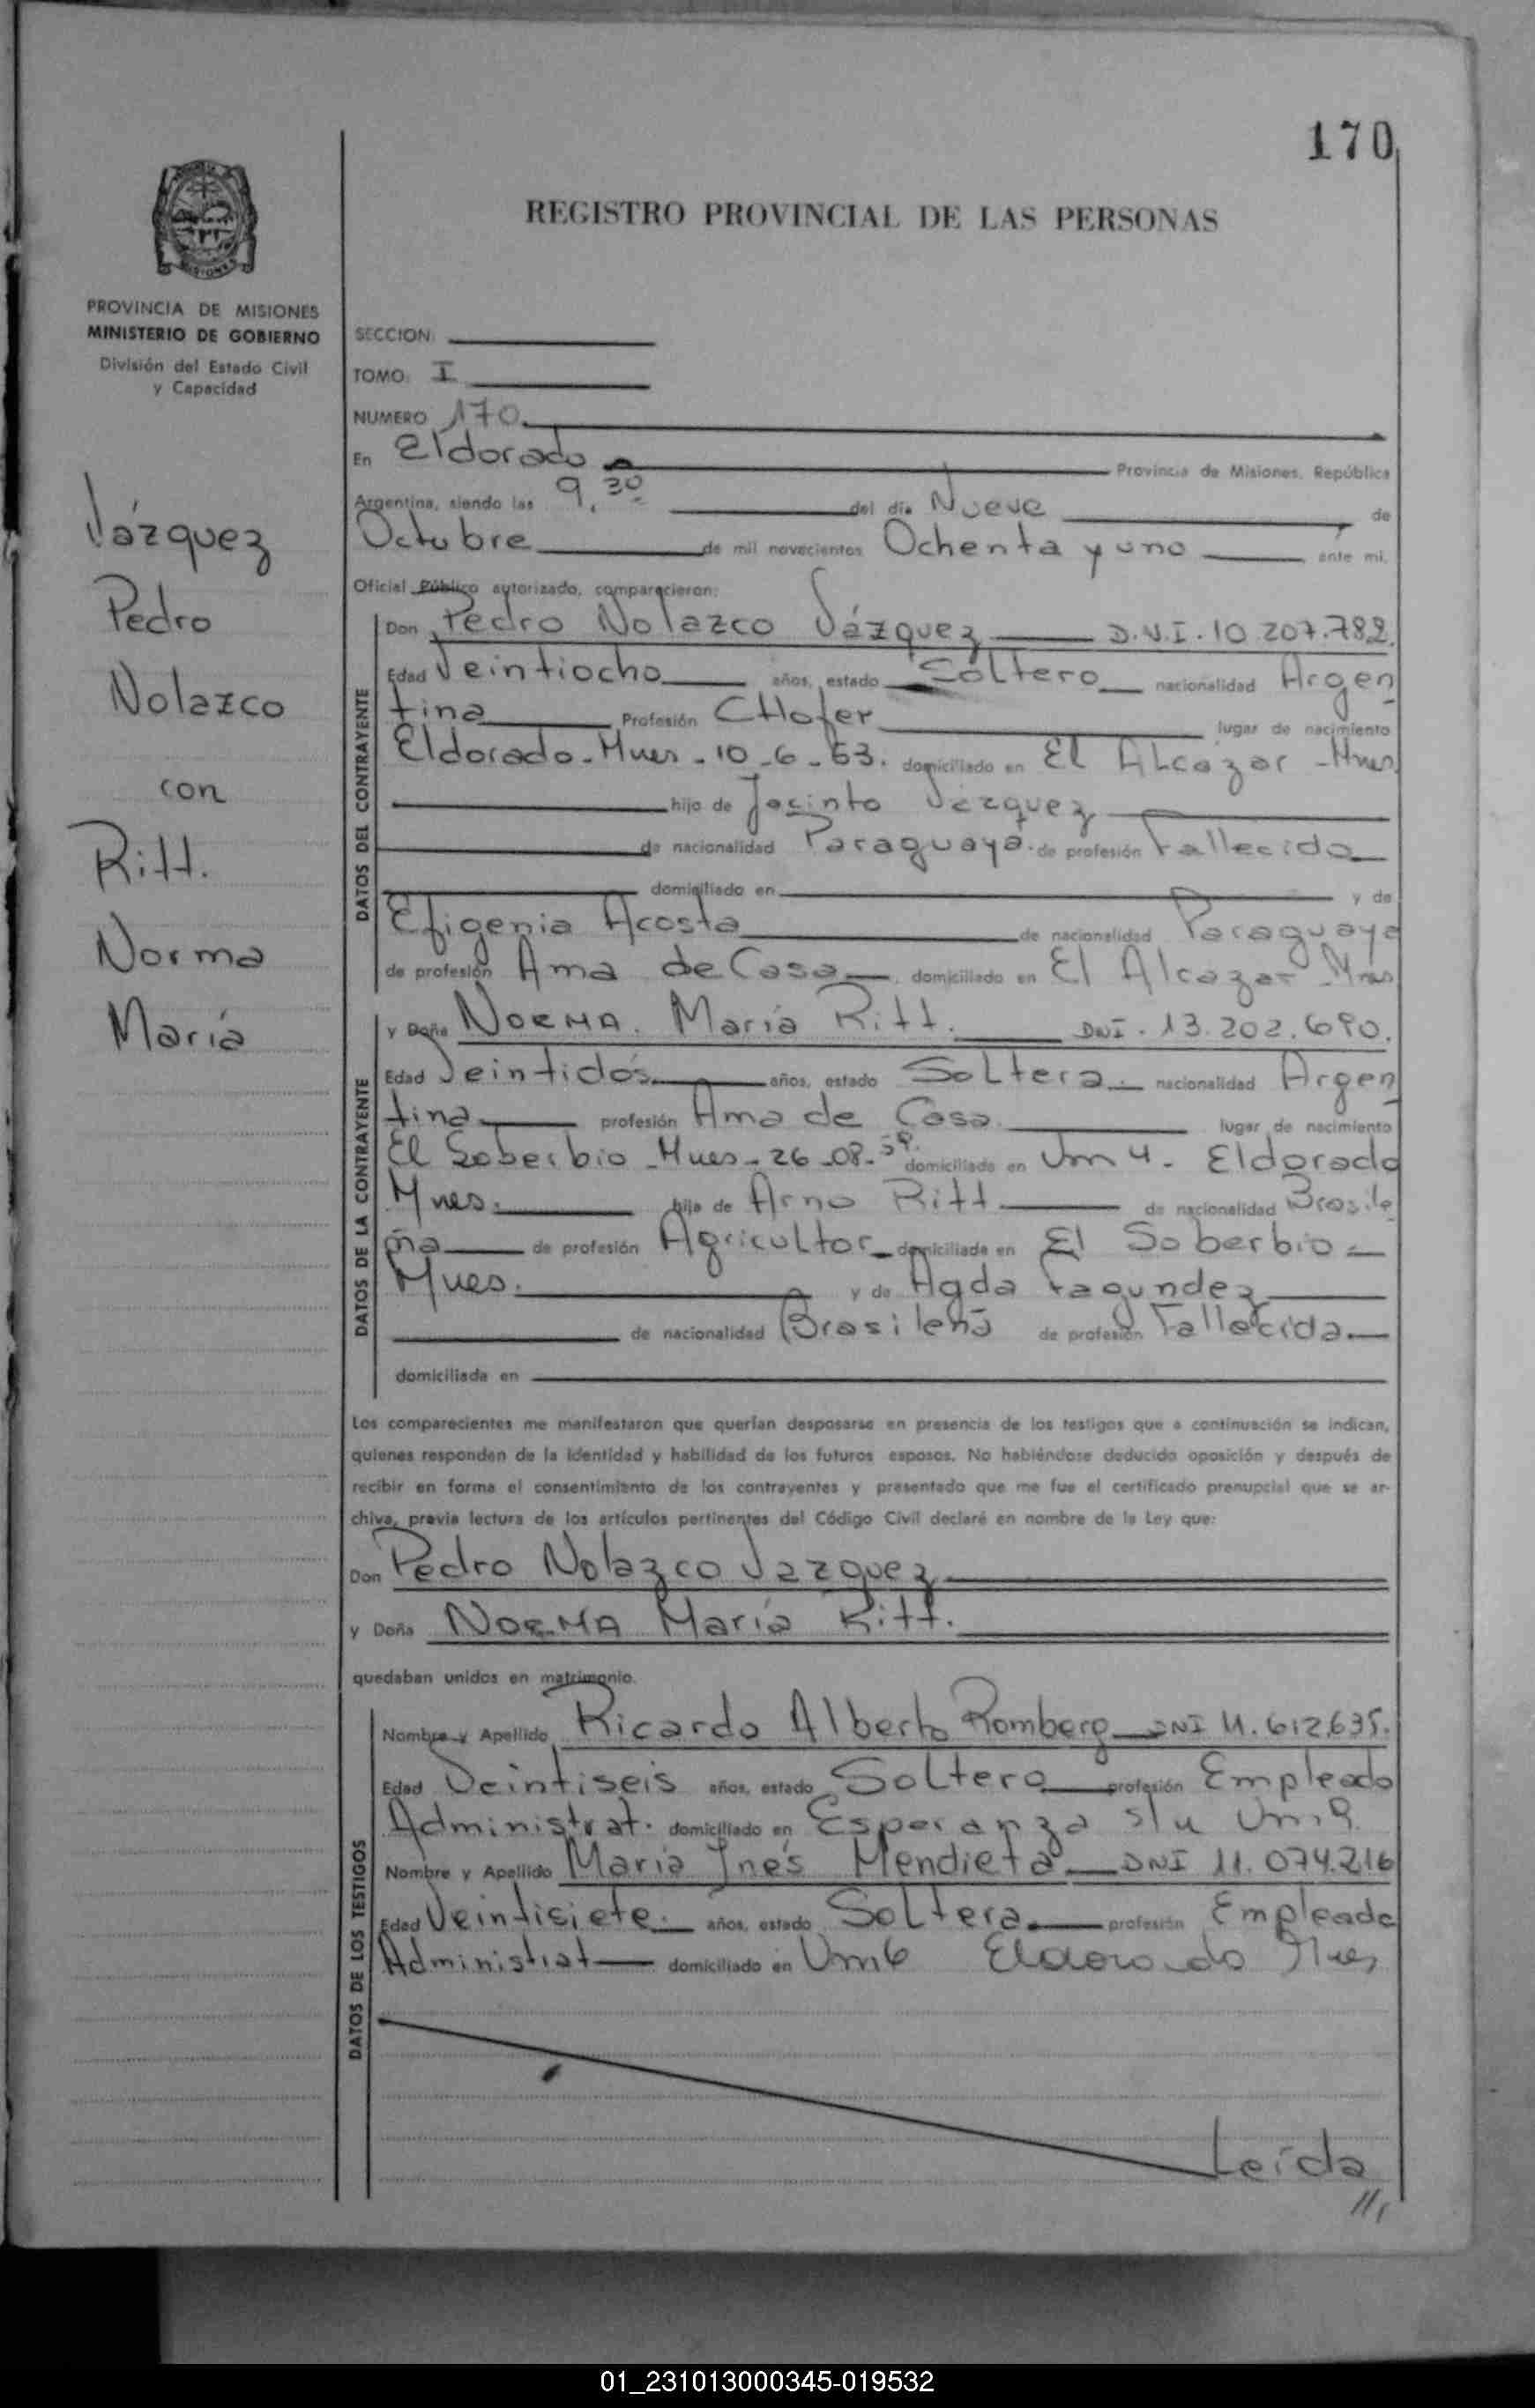 170
REGISTRO PROVINCIAL DE LAS PERSONAS
MISIONES
PROVINCIA DE MISIONES
MINISTERIO DE GOBIERNO
División del Estado Civil
y Capacidad
Vázquez
Pedro
Nolazco
con
Ritt.
Norma
María
SECCION:
TOMO: I
NUMERO 170
En Eldorado Provincia de Misiones, República
Argentina, siendo las 9,30 del día Nueve de
Octubre de mil novecientos Ochenta y uno ante mi.
Oficial Público autorizado, comparecieron:
DATOS DEL CONTRAYENTE
Don Pedro Nolazco Vázquez D.N.I. 10.207.782.
Edad Veintiocho años, estado Soltero nacionalidad Argen
tina Profesión CHofer lugar de nacimiento
Eldorado - Mnes - 10-6-53. domiciliado en El Alcázar - Mnes
hijo de Jacinto Vázquez
de nacionalidad Paraguaya. de profesión Fallecido
domiciliado en y de
Efigenia Acosta de nacionalidad Paraguaya
de profesión Ama de Casa domiciliado en El Alcazar - Mnes
DATOS DE LA CONTRAYENTE
y Doña NORMA. María Ritt. DNI. 13.202.690.
Edad Veintidós años, estado Soltera. nacionalidad Argen
tina profesión Ama de Casa. lugar de nacimiento
El Soberbio - Mnes - 26-08-59. domiciliada en Km 4. Eldorado
Mnes. hija de Arno Ritt de nacionalidad Brasile
ña de profesión Agricultor domiciliada en El Soberbio -
Mnes. y de Agda Fagundez
de nacionalidad Brasileña de profesión Fallecida
domiciliada en
Los comparecientes me manifestaron que querían desposarse en presencia de los testigos que a continuación se indican,
quienes responden de la identidad y habilidad de los futuros esposos. No habiéndose deducido oposición y después de
recibir en forma el consentimiento de los contrayentes y presentado que me fue el certificado prenupcial que se ar-
chiva, previa lectura de los artículos pertinentes del Código Civil declaré en nombre de la Ley que:
Don Pedro Nolazco Vazquez
y Doña NORMA María Ritt.
quedaban unidos en matrimonio.
DATOS DE LOS TESTIGOS
Nombre y Apellido Ricardo Alberto Romberg DNI 11.612.635.
Edad Veintiseis años, estado Soltero profesión Empleado
Administrat. domiciliado en Esperanza s/n Km 9.
Nombre y Apellido María Inés Mendieta DNI 11.074.216
Edad Veintisiete. años, estado Soltera. profesión Empleada
Administrat domiciliado en Km 6 Eldorado Mnes
Leída
///
01_231013000345-019532